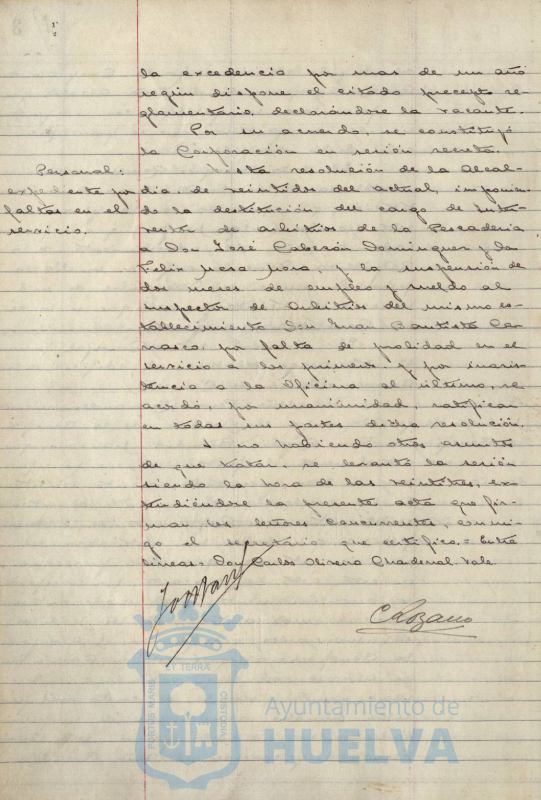 la excedencia por mas de un año
según dispone el citado precepto re-
glamentario, declarándose la vacante.
Por su acuerdo, se constituyó
la Corporación en sesión secreta.
Personal:
expediente por
faltas en el
servicio.
Vista resolución de la Alcal-
día, de veintidos del actual, imponien-
do la destitución del cargo de Inter-
ventor de arbitrios de la Pescaderia
a Don José Cabezón Dominguez y Don
Felix Mesa Mora, y la suspensión de
dos meses de empleo y sueldo al
Inspector de Arbitrios del mismo es-
tablecimiento Don Juan Bautista Ca-
rrasco, por falta de probidad en el
servicio a los primeros, y por inasis-
tencia a la Oficina al último, se
acordó, por unanimidad, ratificar
en todas sus partes dicha resolución.
Y no habiendo otros asuntos
de que tratar, se levantó la sesión
siendo la hora de las veintitres, ex-
tendiéndose la presente acta que fir-
man los señores concurrentes, conmi-
go el secretario que certifico.= Entre
lineas= Don Carlos Oliveira Chardenal. Vale
CLozano
PORTUS MARIS
ET TERRÆ
CUSTODIA
Ayuntamiento de
HUELVA